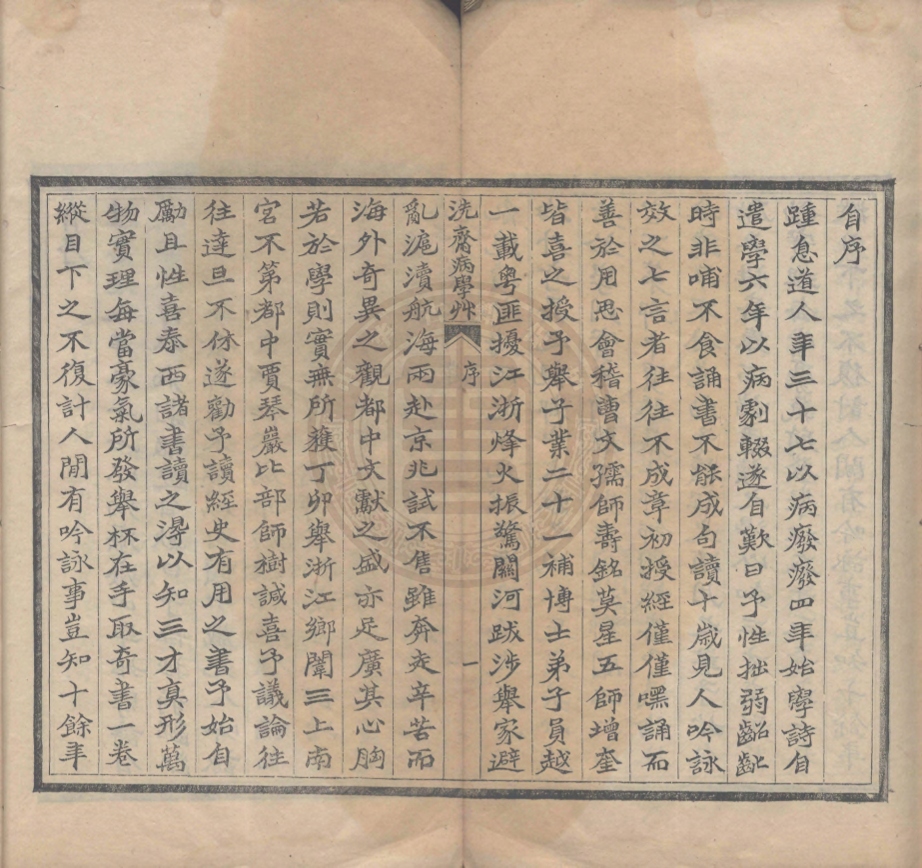 自序
踵息道人年三十七以病癈癈四年始學詩自
遣學六年以病劇輟遂自歎曰予性拙弱齠齔
時非哺不食誦書不能成句讀十歲見人吟詠
效之七言者往往不成章初授經僅僅嘿誦而
善於用思會稽曹文孺師壽銘莫星五師增奎
皆喜之授予舉子業二十一補博士弟子員越
一載粵匪擾江浙烽火振驚關河跋涉舉家避
洗齋病學艸
序
一
亂滬瀆航海兩赴京兆試不售雖奔走辛苦而
海外奇異之觀都中文獻之盛亦足廣其心胸
若於學則實無所獲丁卯舉浙江鄉闈三上南
宮不第都中賈琴巖比部師樹諴喜予議論往
往達旦不休遂勸予讀經史有用之書予始自
勵且性喜泰西諸書讀之得以知三才真形萬
物實理每當豪氣所發舉杯在手取奇書一卷
縱目下之不復計人閒有吟詠事豈知十餘年